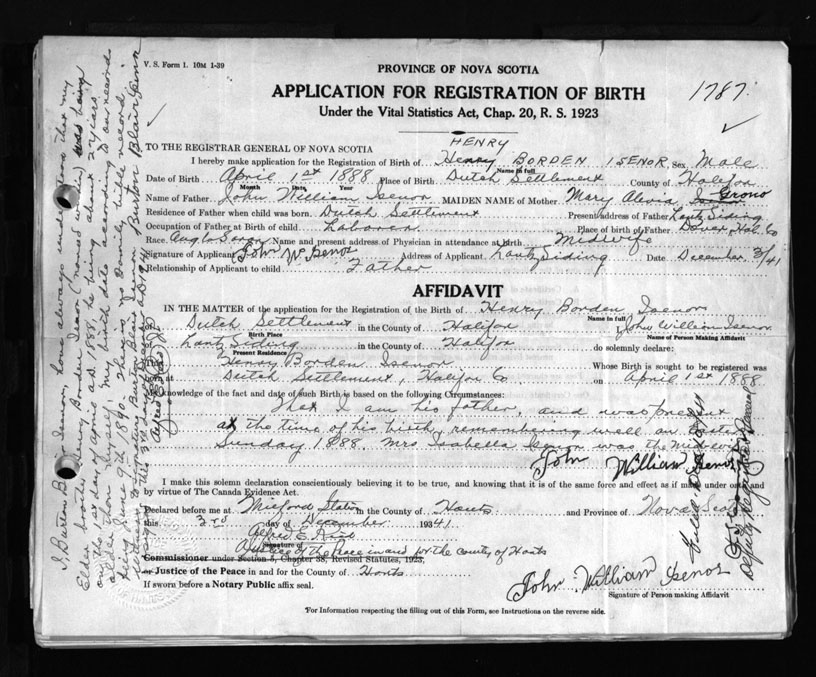 V. S. Form 1. 10M 1-39
PROVINCE OF NOVA SCOTIA
APPLICATION FOR REGISTRATION OF BIRTH
1787.
Under the Vital Statistics Act, Chap. 20, R. S. 1923
TO THE REGISTRAR GENERAL OF NOVA SCOTIA
HENRY
I hereby make application for the Registration of Birth of Henry BORDEN ISENOR Sex Male
Name in full
Date of Birth April 1st 1888 Place of Birth Dutch Settlement County of Halifax
Month Date Year
Name of Father John William Isenor MAIDEN NAME of Mother Mary Alevia Grono
Residence of Father when child was born Dutch Settlement Present Address of Father Lantz Siding
Occupation of Father at Birth Laborer Place of birth of Father Dover, Hal. Co
Race Anglo Saxon Name and present address of Physician in attendance at Birth Midwife
Signature of Applicant John W. Isenor Address of Applicant Lantz Siding Date December 3/41
Relationship of Applicant to child Father
AFFIDAVIT
IN THE MATTER of the application for the Registration of the Birth of Henry Borden Isenor
Name in full
of Dutch Settlement in the County of Halifax John William Isenor
Birth Place Name of Person Making Affidavit
of Lantz Siding in the County of Halifax do solemnly declare:
Present Residence
That Henry Borden Isenor Whose Birth is sought to be registered was
born at Dutch Settlement, Halifax Co on April 1st 1888
My knowledge of the fact and date of such Birth is based on the following Circumstances:
That I am his father, and was present
at the time of his birth, remembering well on Easter
Sunday 1888. Mrs. Isabella Isenor was the Midwife
John William Isenor
I make this solemn declaration conscientiously believing it to be true, and knowing that it is of the same force and effect as if made under oath and
by virtue of The Canada Evidence Act.
Declared before me at Milford Station in the County of Hants and Province of Nova Scotia
this 3rd day of December 1941
Alfred E.
Signature of
Justice of the Peace in and for the county of Hants
Commissioner under Section 5, Chapter 38, Revised Statutes, 1923,
or Justice of the Peace in and for the County of Hants
If sworn before a Notary Public affix seal.
John William Isenor
Signature of Person making Affidavit
*For Information respecting the filling out of this Form, see Instructions on the reverse side.
I, Burton B. Isenor, have always understood that my
Elder brother Henry Borden Isenor (named within) was being
on the 1st day of April A.D. 1888, he being about 2 years
older than myself, my birth date according to our records
being June 9th 1890. There is no Family bible record.
Burton Blair Isenor
Deputy Registrar General